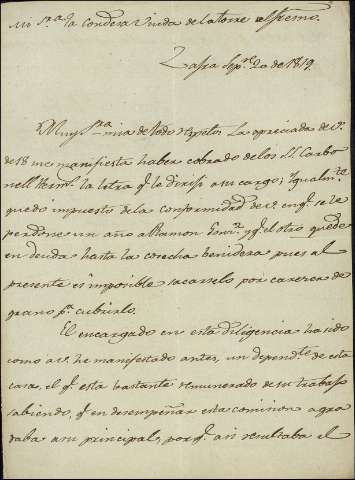 Mi Sra. la Condesa Viuda de la torre
Zafra Sepre. 20 de 1819.
Muy Sra. mia de todo respeto: La apreciada de V.
de 18 me manifiesta haber cobrado de los SS. Carbo
nell Herms. la letra q.e le dirijí a su cargo; Igualmte.
quedó impuesto de la conformidad de V. en q.e se le
perdone un año a Ramon y q.e el otro quede
en deuda hasta la cosecha benidera pues al
presente es imposible sacarselo por carencia de
grano pa. cubrirlo.
El encargado en esta diligencia ha sido
como a V. he manifestado antes, un dependte. de esta
casa, el q.e esta bastante remunerado de su trabajo
sabiendo, q.e en desempeñar esta comision agra
daba a su principal, porq.e asi resultaba el